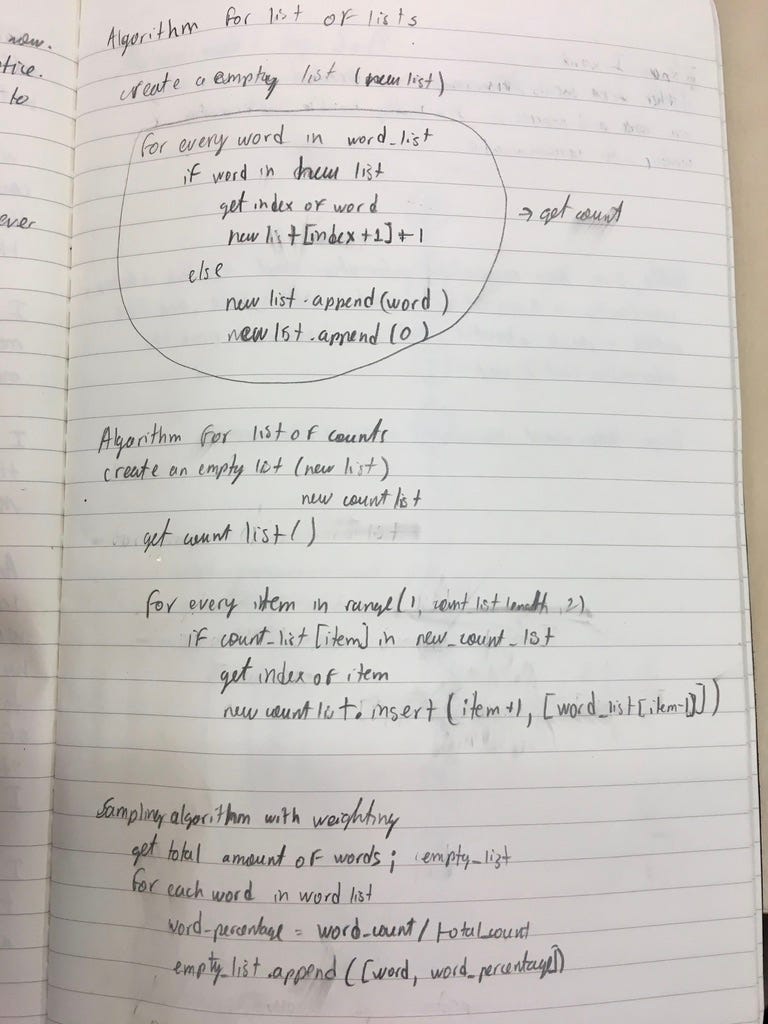 now.
tice.
to
ever
Algorithm for list of lists
create a empty list (new list)
for every word in word_list
if word in new list
get index of word
new list[index+1]+1
→ get count
else
new list.append(word)
new list.append(0)
Algorithm for list of counts
create an empty list (new list)
new count list
get count list()
for every item in range(1, count list length, 2)
if count_list[item] in new_count_list
get index of item
new count list.insert(item+1, [word_list[item-1]])
Sampling algorithm with weighting
get total amount of words; empty_list
for each word in word list
word-percentage = word_count/total_count
empty_list.append([word, word_percentage])